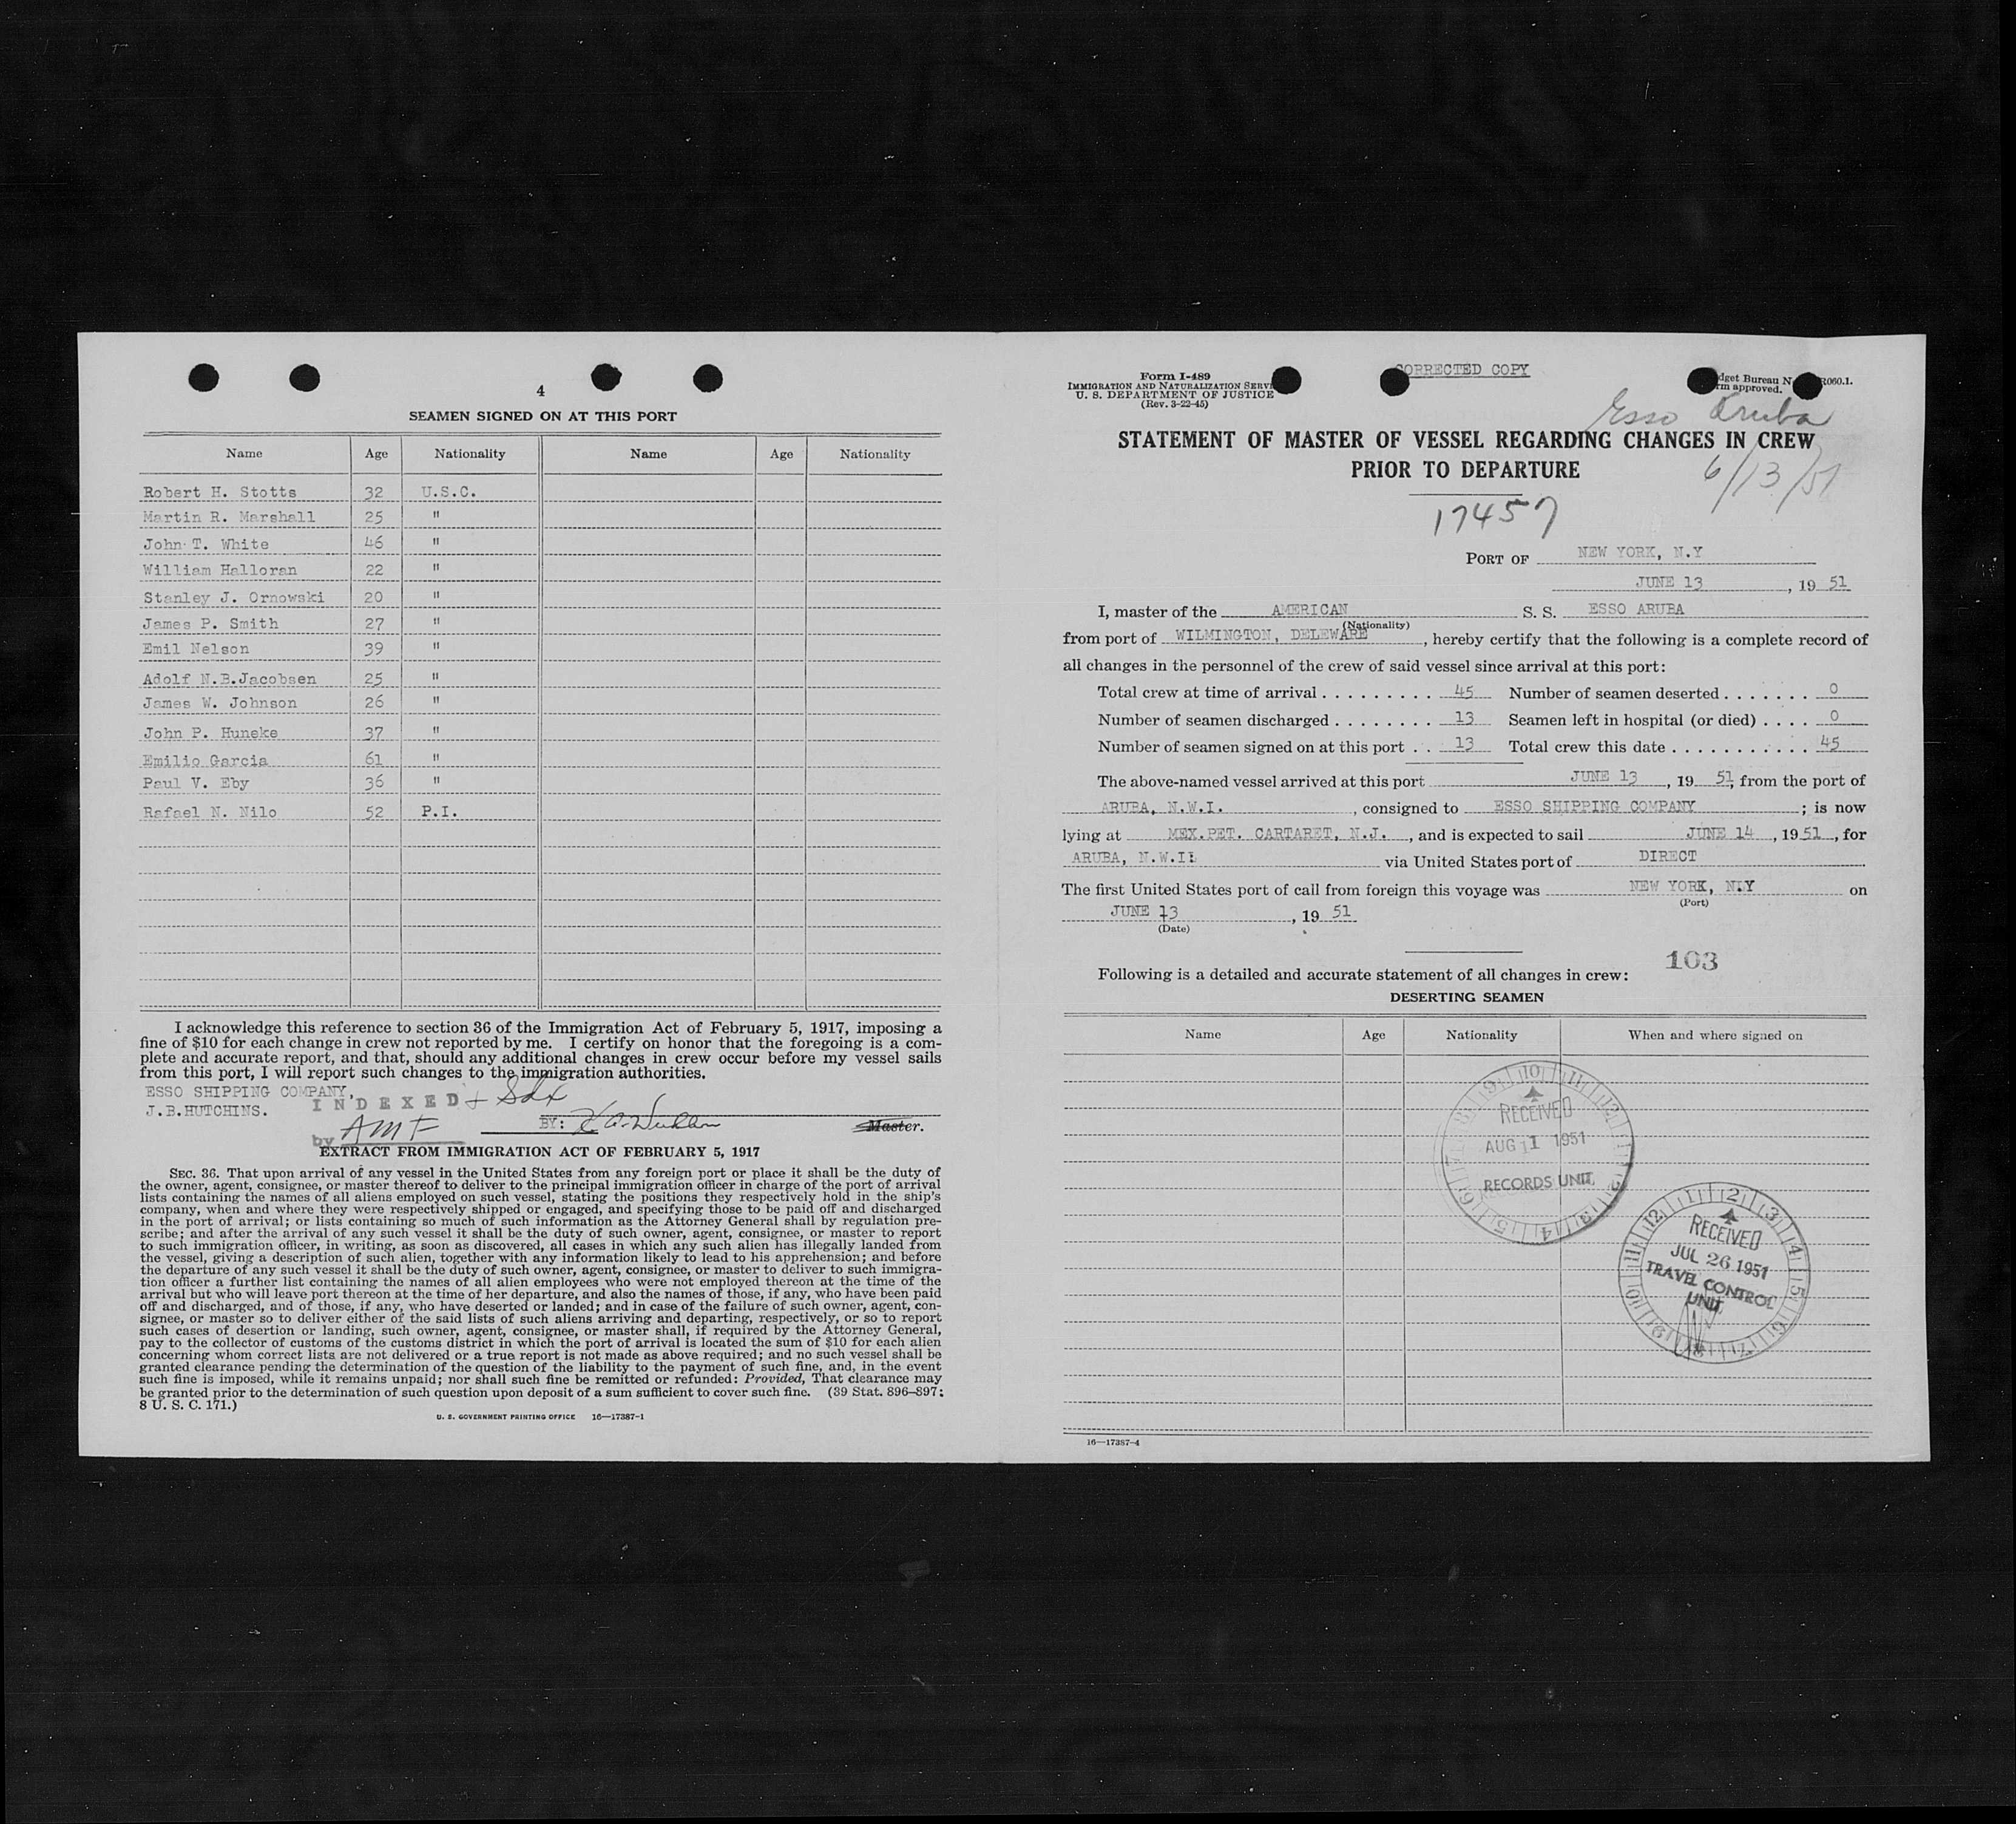 4
SEAMEN SIGNED ON AT THIS PORT
Name Age Nationality Name Age Nationality
Robert H. Stotts 32 U.S.C.
Martin R. Marshall 25 "
John T. White 46 "
William Halloran 22 "
Stanley J. Ornowski 20 "
James P. Smith 27 "
Emil Nelson 39 "
Adolf N.B.Jacobsen 25 "
James W. Johnson 26 "
John P. Huneke 37 "
Emilio Garcia 61 "
Paul V. Eby 36 "
Rafael N. Nilo 52 P.I.
I acknowledge this reference to section 36 of the Immigration Act of February 5, 1917, imposing a
fine of $10 for each change in crew not reported by me. I certify on honor that the foregoing is a com-
plete and accurate report, and that, should any additional changes in crew occur before my vessel sails
from this port, I will report such changes to the immigration authorities.
ESSO SHIPPING COMPANY,
J.B.HUTCHINS.
INDEXED
by AMF
BY:
Master.
EXTRACT FROM IMMIGRATION ACT OF FEBRUARY 5, 1917
SEC. 36. That upon arrival of any vessel in the United States from any foreign port or place it shall be the duty of
the owner, agent, consignee, or master thereof to deliver to the principal immigration officer in charge of the port of arrival
lists containing the names of all aliens employed on such vessel, stating the positions they respectively hold in the ship's
company, when and where they were respectively shipped or engaged, and specifying those to be paid off and discharged
in the port of arrival; or lists containing so much of such information as the Attorney General shall by regulation pre-
scribe; and after the arrival of any such vessel it shall be the duty of such owner, agent, consignee, or master to report
to such immigration officer, in writing, as soon as discovered, all cases in which any such alien has illegally landed from
the vessel, giving a description of such alien, together with any information likely to lead to his apprehension; and before
the departure of any such vessel it shall be the duty of such owner, agent, consignee, or master to deliver to such immigra-
tion officer a further list containing the names of all alien employees who were not employed thereon at the time of the
arrival but who will leave port thereon at the time of her departure, and also the names of those, if any, who have been paid
off and discharged, and of those, if any, who have deserted or landed; and in case of the failure of such owner, agent, con-
signee, or master so to deliver either of the said lists of such aliens arriving and departing, respectively, or so to report
such cases of desertion or landing, such owner, agent, consignee, or master shall, if required by the Attorney General,
pay to the collector of customs of the customs district in which the port of arrival is located the sum of $10 for each alien
concerning whom correct lists are not delivered or a true report is not made as above required; and no such vessel shall be
granted clearance pending the determination of the question of the liability to the payment of such fine, and, in the event
such fine is imposed, while it remains unpaid; nor shall such fine be remitted or refunded: Provided, That clearance may
be granted prior to the determination of such question upon deposit of a sum sufficient to cover such fine. (39 Stat. 896–897;
8 U. S. C. 171.)
U. S. GOVERNMENT PRINTING OFFICE 16—17387-1
Form I-489
IMMIGRATION AND NATURALIZATION SERVI
U. S. DEPARTMENT OF JUSTICE
(Rev. 3-22-45)
CORRECTED COPY
dget Bureau N R060.1.
rm approved.
Esso Aruba
STATEMENT OF MASTER OF VESSEL REGARDING CHANGES IN CREW
PRIOR TO DEPARTURE
6/13/51
17457
PORT OF NEW YORK, N.Y
JUNE 13, 19 51
I, master of the AMERICAN S. S. ESSO ARUBA
(Nationality)
from port of WILMINGTON, DELEWARE, hereby certify that the following is a complete record of
all changes in the personnel of the crew of said vessel since arrival at this port:
Total crew at time of arrival . . . . . . . . . 45 Number of seamen deserted . . . . . . . 0
Number of seamen discharged . . . . . . . . 13 Seamen left in hospital (or died) . . . . 0
Number of seamen signed on at this port . . 13 Total crew this date . . . . . . . . . . . 45
The above-named vessel arrived at this port JUNE 13, 19 51, from the port of
ARUBA, N.W.I., consigned to ESSO SHIPPING COMPANY; is now
lying at MEX.PET. CARTARET, N.J., and is expected to sail JUNE 14, 19 51, for
ARUBA, N.W.I. via United States port of DIRECT
The first United States port of call from foreign this voyage was NEW YORK, N.Y on
(Port)
JUNE 13, 19 51
(Date)
103
Following is a detailed and accurate statement of all changes in crew:
DESERTING SEAMEN
Name Age Nationality When and where signed on
RECEIVED
AUG 11 1951
RECORDS UNIT
RECEIVED
JUL 26 1951
TRAVEL CONTROL
UNIT
16—17387-4